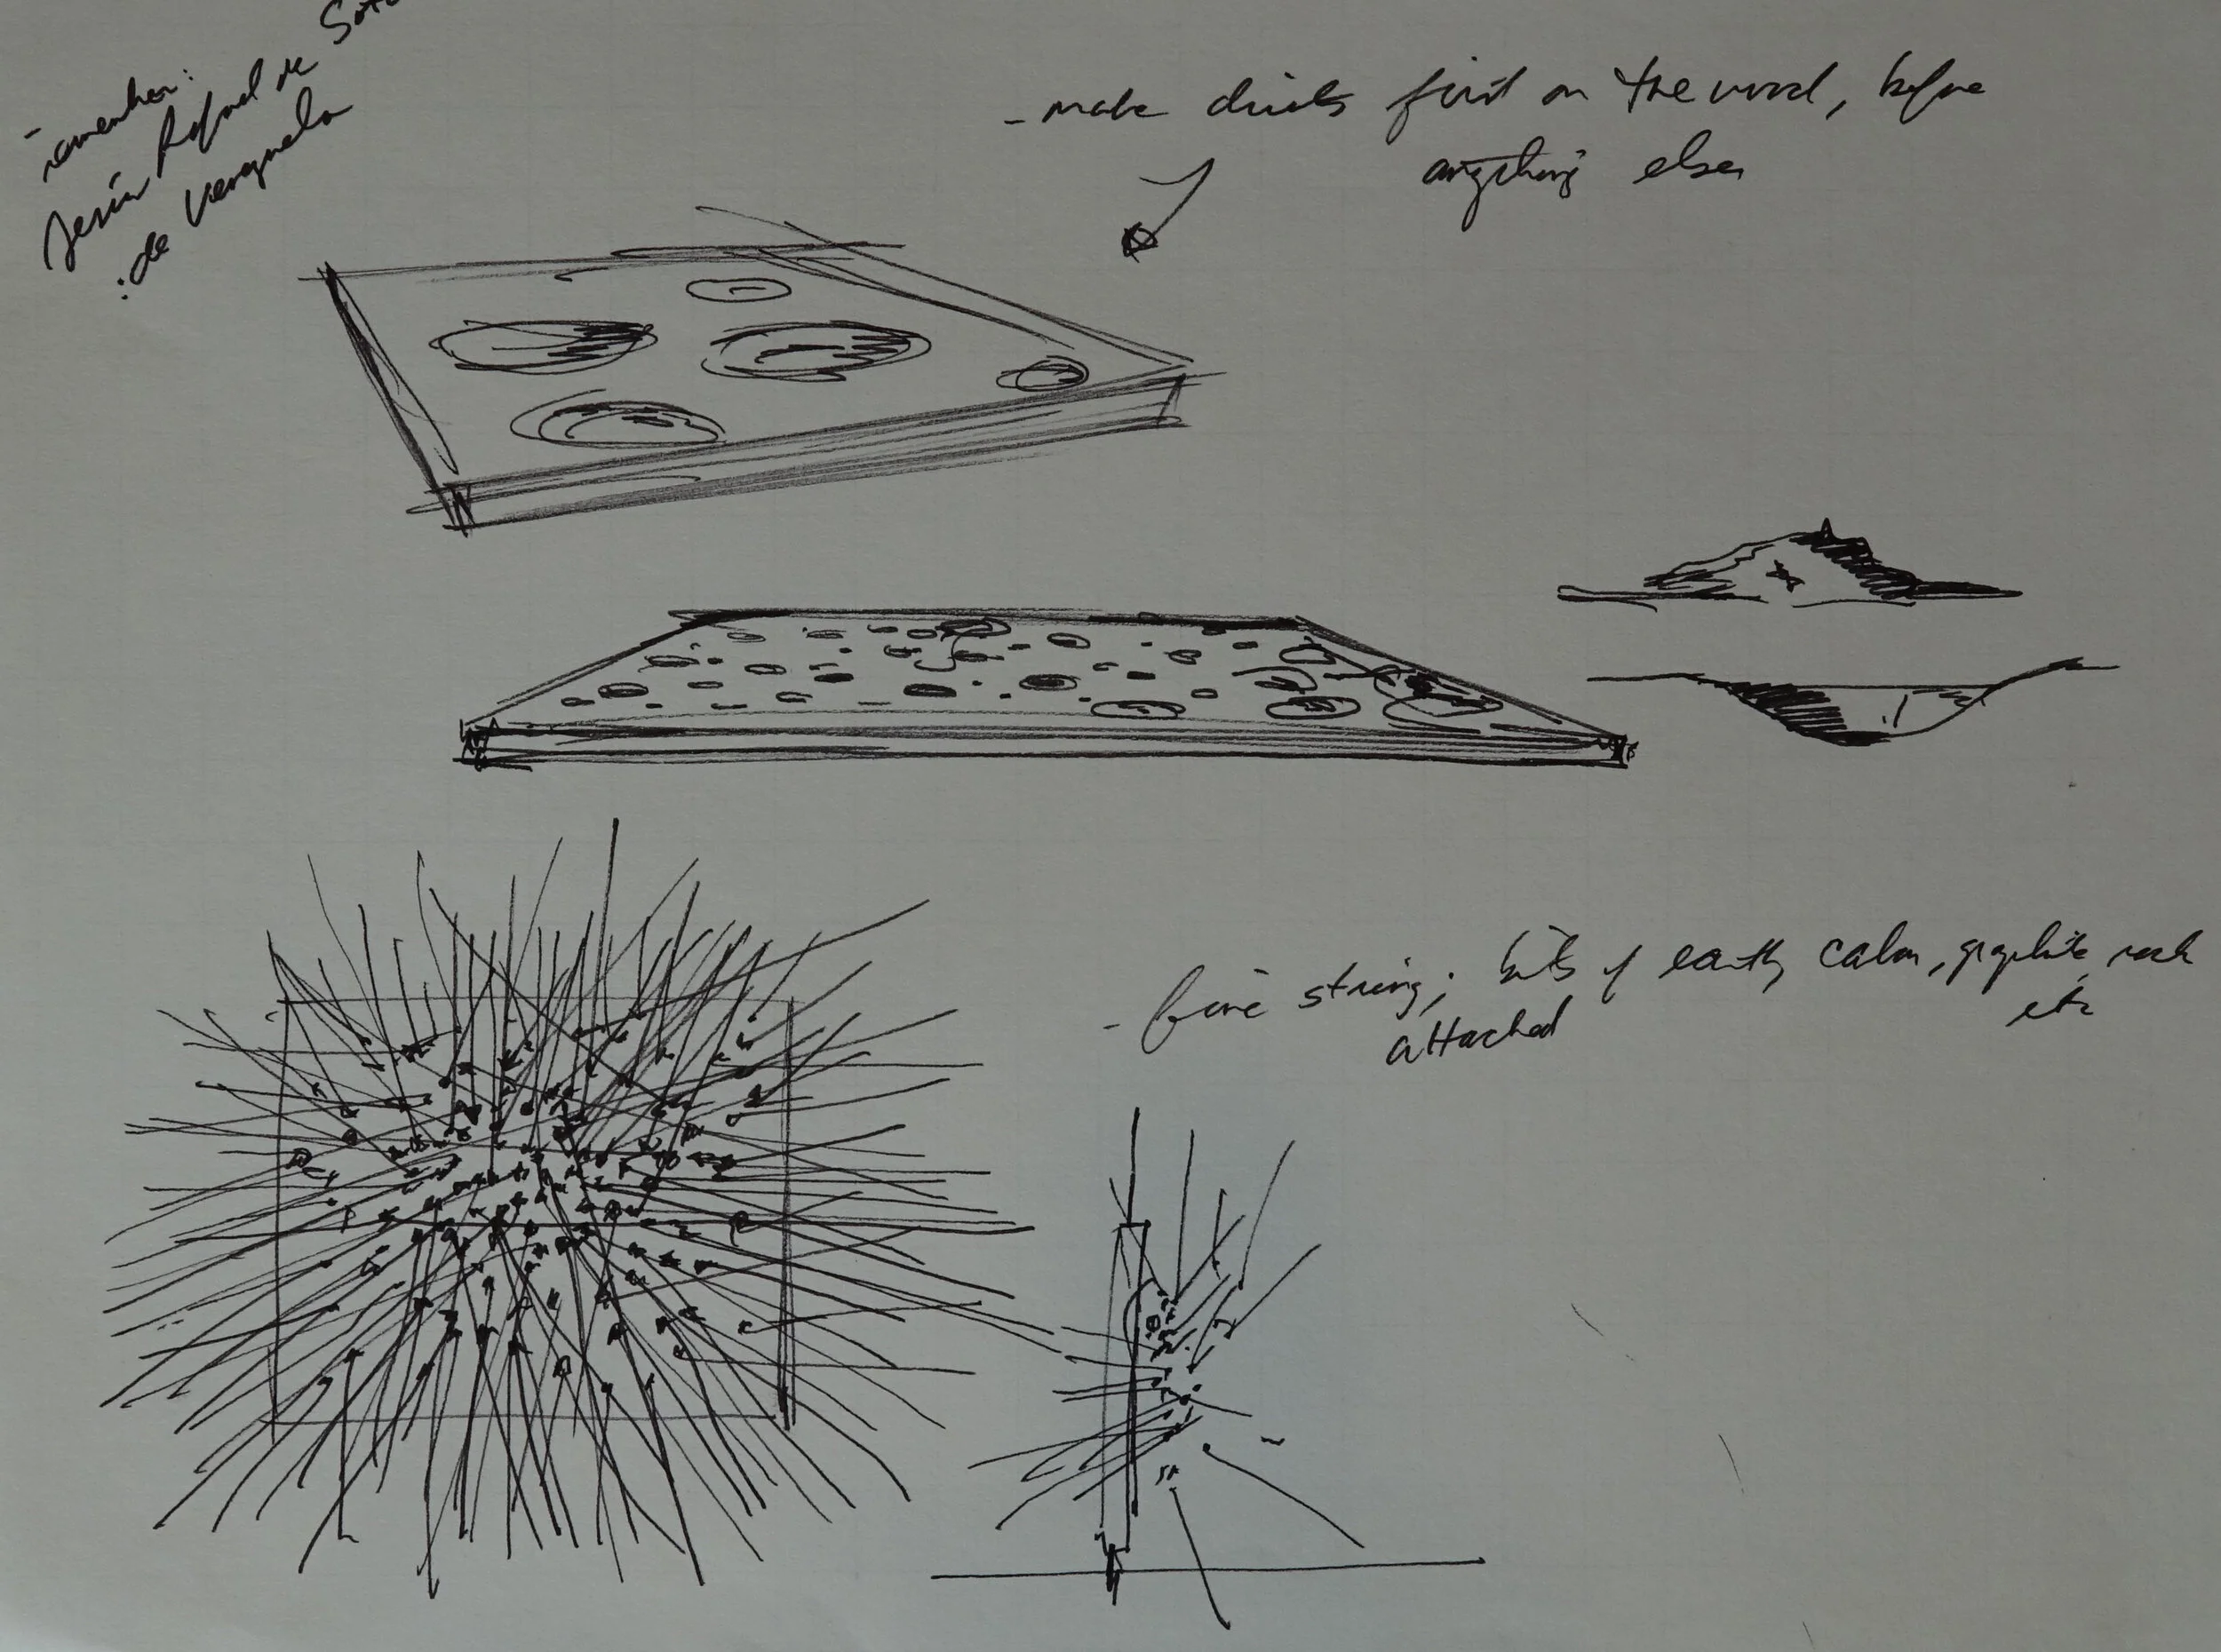 - remember:
Jesús Rafael de Soto
: de Venezuela
- make divits first on the wood, before
anything else
- fine string; bits of earth, calm, graphite, rock
attached etc